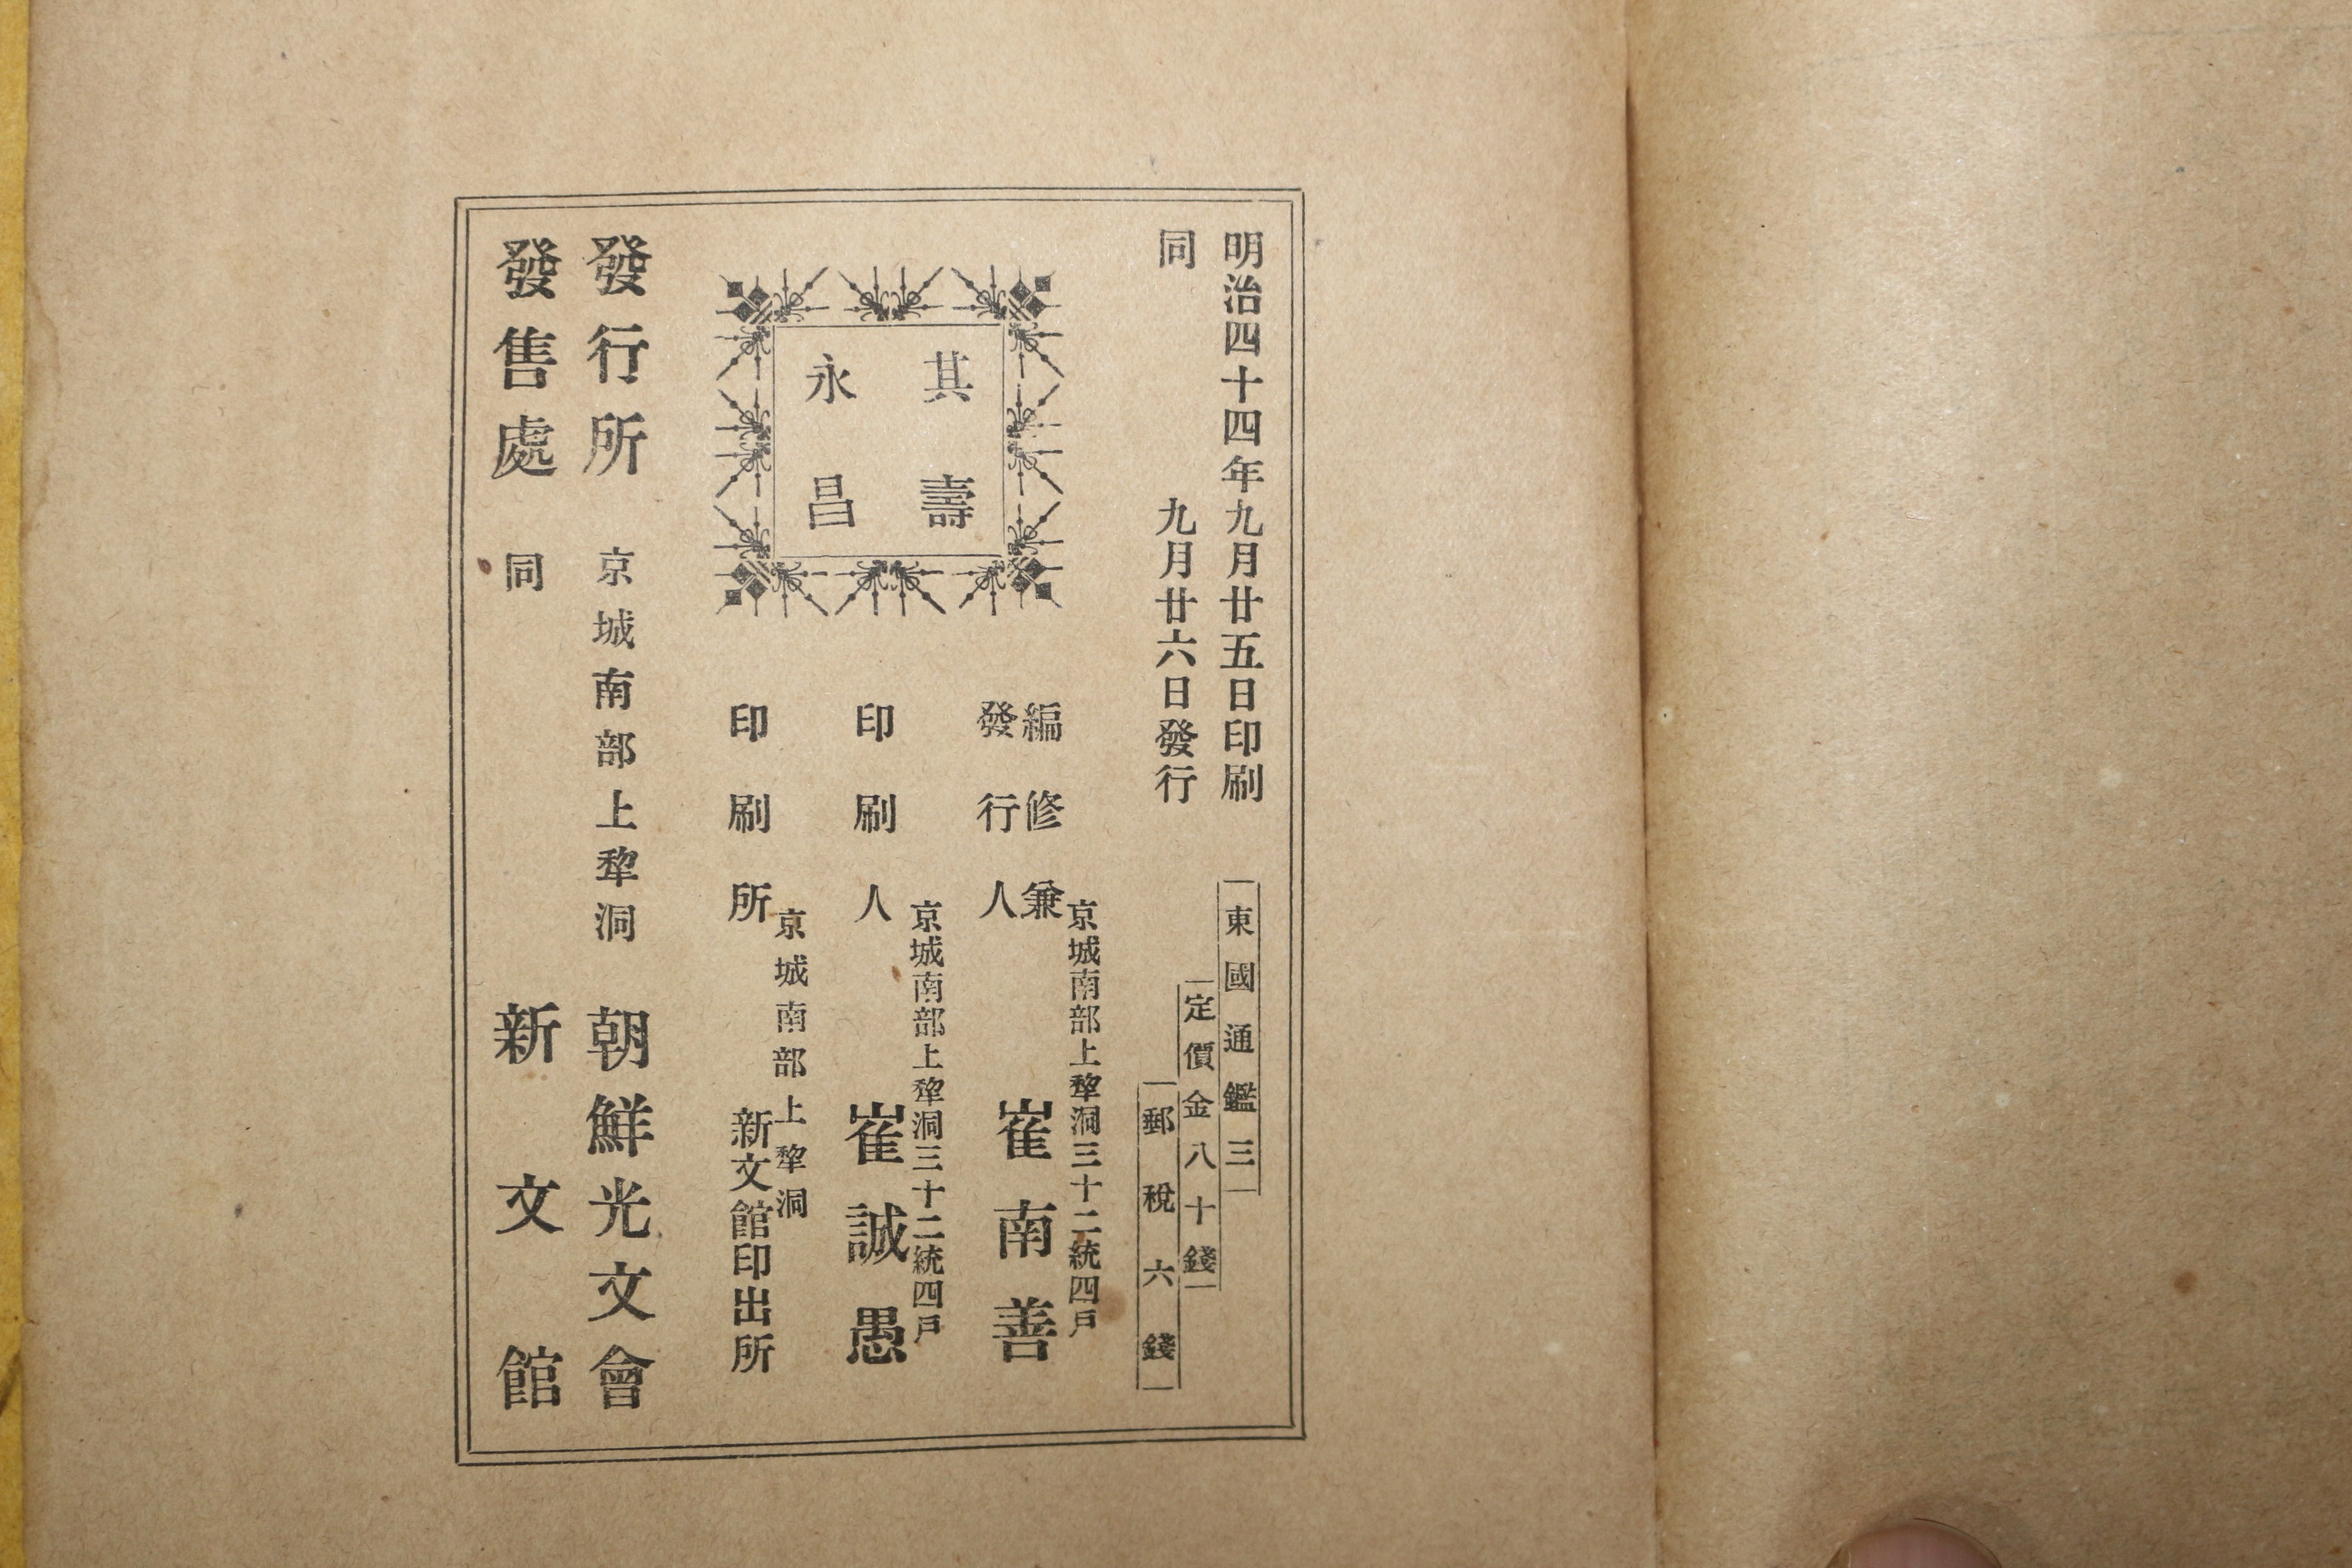 明治四十四年九月廿五日印刷
同　九月廿六日發行
東國通鑑三
定價金八十錢
郵稅六錢
其壽
永昌
編修兼
發行人
京城南部上犂洞三十二統四戶
崔南善
印刷人
京城南部上犂洞三十二統四戶
崔誠愚
印刷所
京城南部上犂洞
新文館印出所
發行所　京城南部上犂洞　朝鮮光文會
發售處　同　新文館